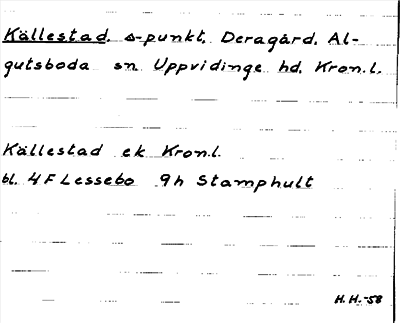 Källestad. ▵-punkt. Deragård. Al-
gutsboda sn. Uppvidinge hd. Kron.l.
Källestad ek Kron.l.
bl. 4F Lessebo 9h Stamphult
H.H.-58